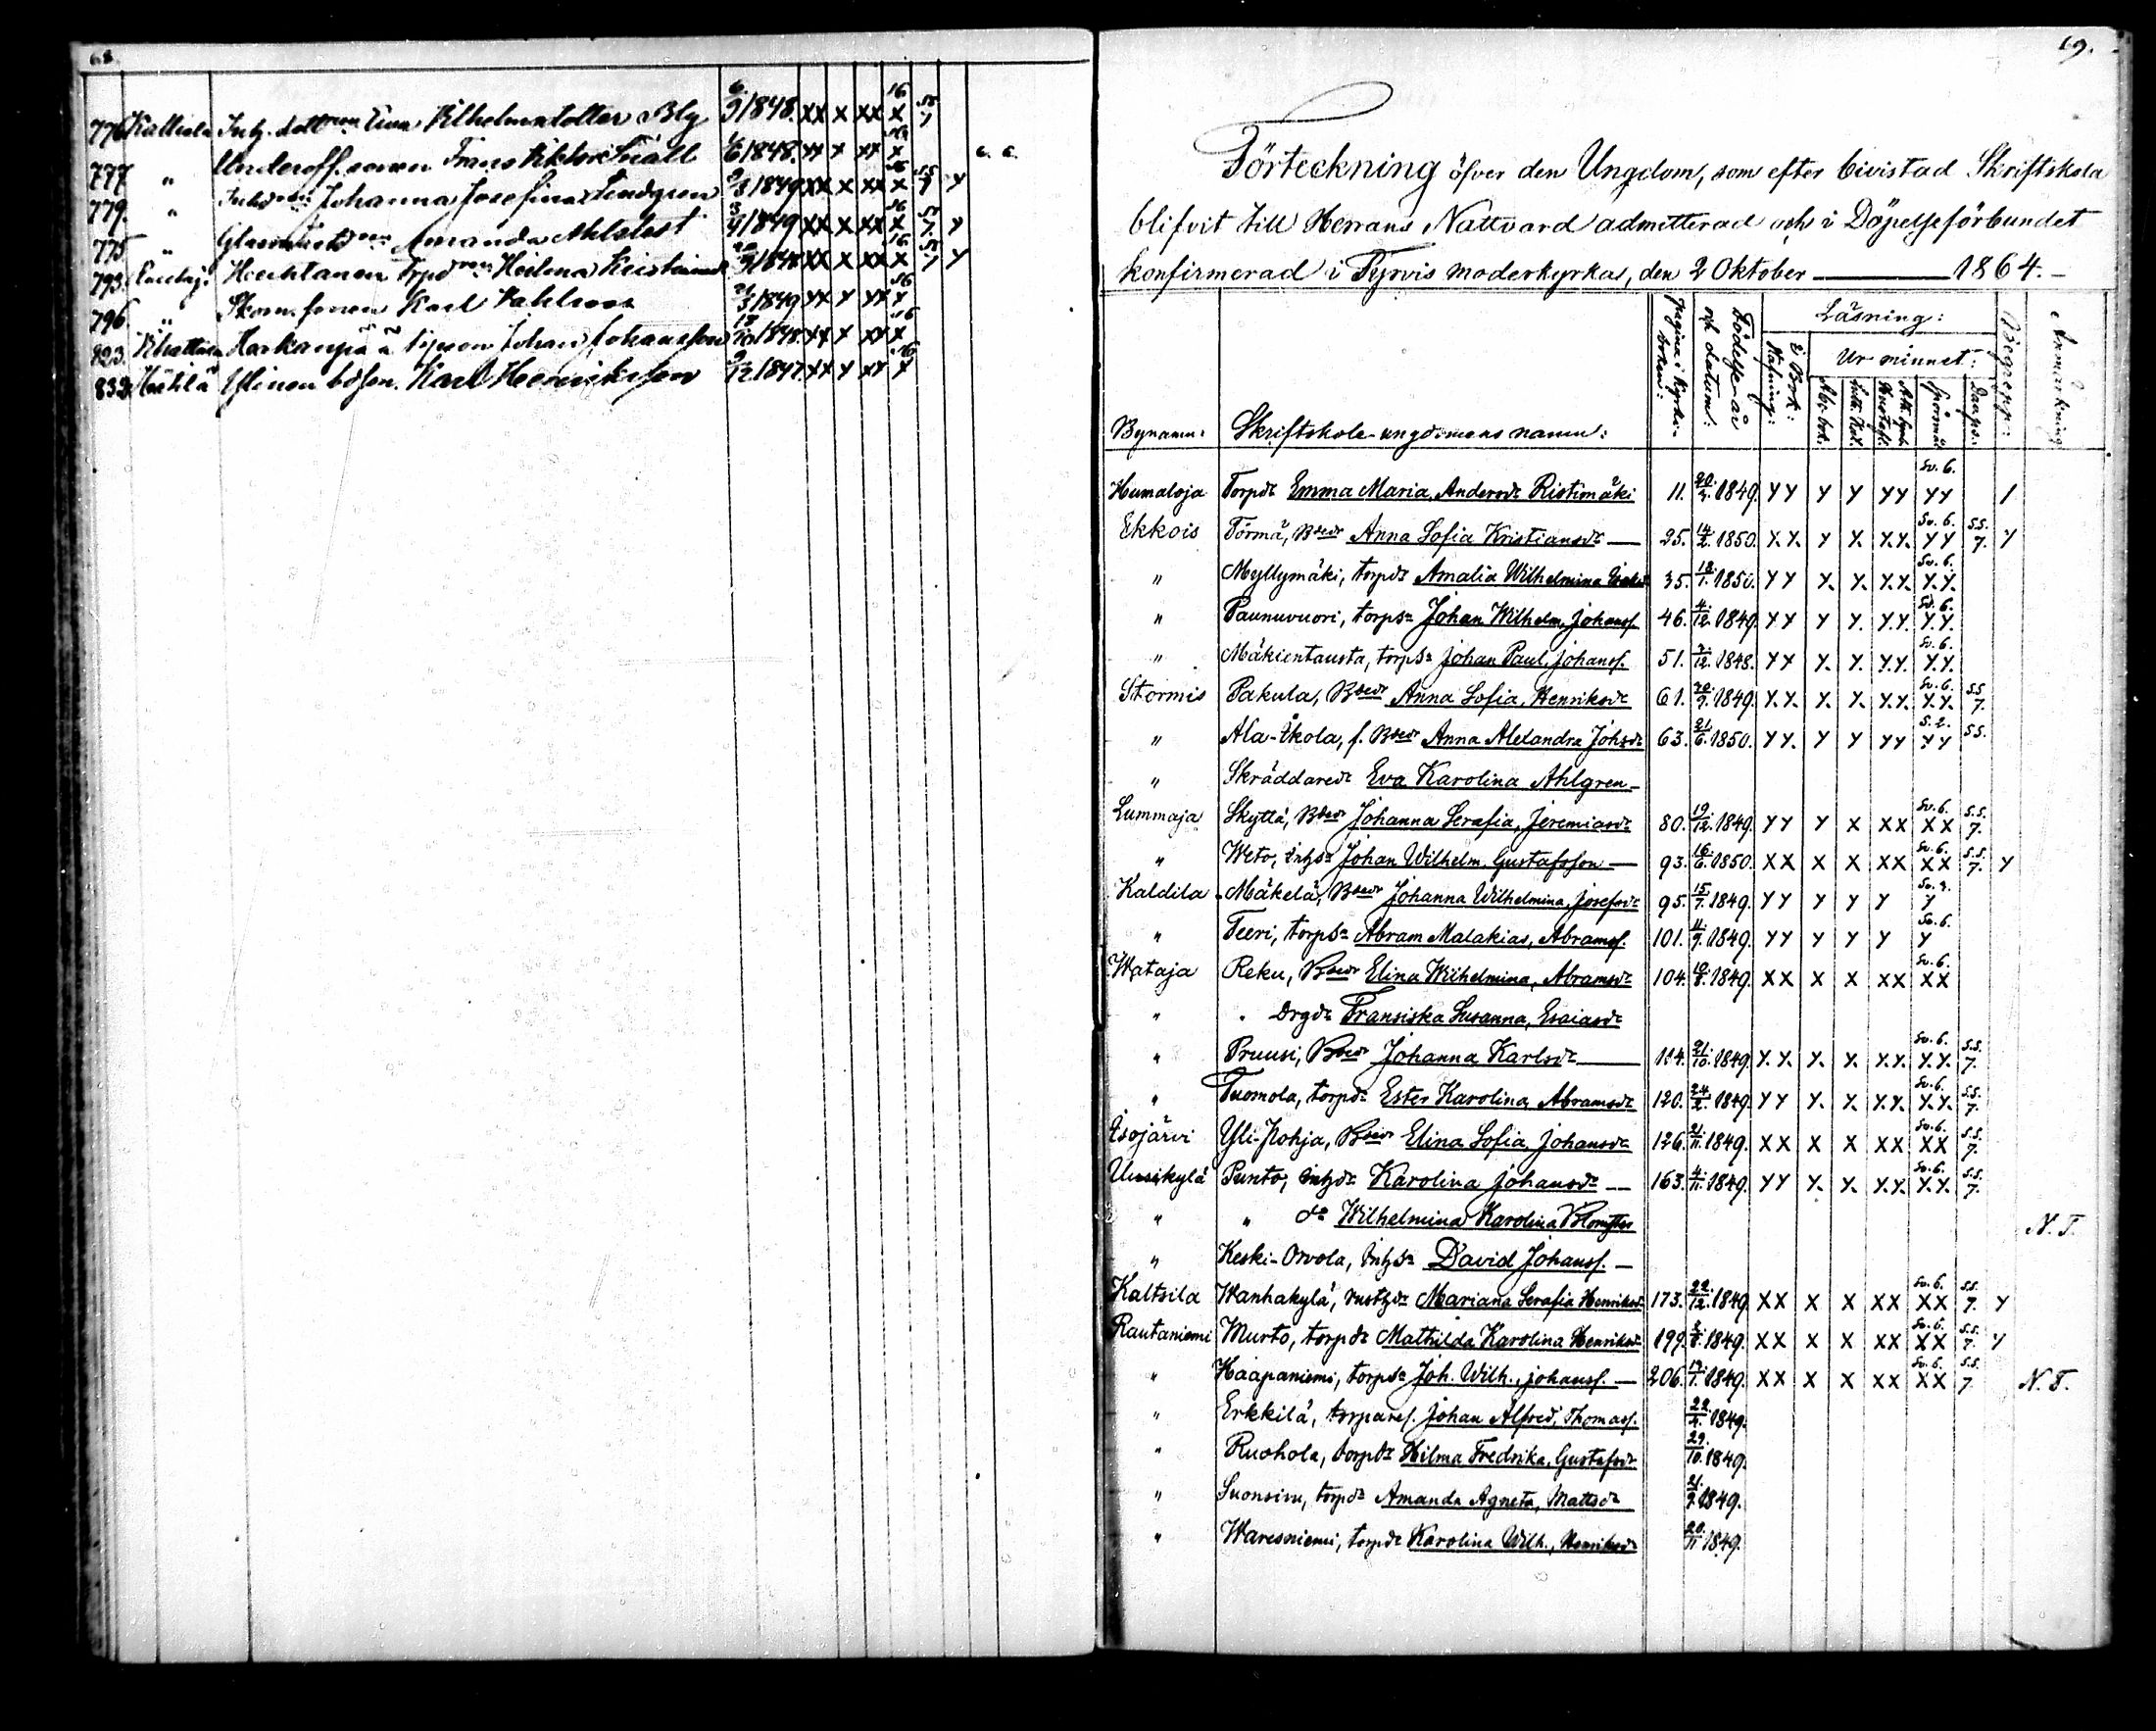 68.
776 Kalliala Inh. dott Wilhelmina Blg 6/9 1848. xx x xx x 16 SS 7
777 " Underoff. sonen Frans Viktor Snäll 6 1848. xx x xx x
779. " Johanna Josefina Lindgren 3 1849 xx x xx x SS 7 Y
775 " Amanda Ahlstedt 3/9 1849 xx x xx x 7. Y
793. Hochtanen Torpd Heilena 9 1848 xx x xx x 16 Y
796 " Sonen Karl 3 1849 xx x xx x
823. Johan Johansson 18/10 1848. xx x xx x 16
832. Heikilä Ylinen bdson. Karl Henriksson 9/12 1847. xx x xx x
69.
Förteckning öfver den Ungdom, som efter bivistad Skriftskola
blifvit till Herrans Nattvard admitterad och i Döpelseförbundet
konfirmerad i Tyrvis moderkyrka, den 2 Oktober — 1864. —
Bynamn: Skriftskole-ungdomens namn: Pagina i Kyrkoboken: Födelse-år och datum: Läsning: i Bok: Stafning: Ur minnet: Abc-bok: Luth. Kat. Ath. Symb. Hustafl. Spörsmål Daaps. Begrepp: Anmärkning
Humaloja Torpdr Emma Maria, Andersdr Ristimäki 11. 20/2. 1849. YY Y Y YY Sv. 6. YY 1
Ekkois Törmä, Bdedr Anna Sofia Kristiansdr — 25. 14/2. 1850. X.X. Y X. X.X. Sv. 6. YY S.S. 7. Y
" Myllymäki, torpdr Amalia Wilhelmina 35. 18/1. 1850. YY Y. Y. X.X. Sv. 6. Y.Y.
" Paunuvuori, torpsn Johan Wilhelm, Johansf. 46. 4/12. 1849. YY Y Y. Y.Y. Sv. 6. Y.Y.
" Mäkientausta, torpsn Johan Paul, Johansf. 51. 2/12. 1848. YY Y. Y. Y.Y. Sv. 6. Y.Y.
Stormis Pakula, Bdedr Anna Sofia, Henriksdr 61. 20/9. 1849. X.X. X. X. X.X. Sv. 6. X.X. S.S. 7.
" Ala-Ikola, f. Bdedr Anna Alexandra Johsdr 63. 21/6. 1850. YY. Y Y YY S. 2. YY S.S.
" Skräddaredr Eva Karolina Ahlgren —
Lummaja Skyttä, Bdedr Johanna Serafia, Jeremiasdr 80. 19/12. 1849. YY Y X XX Sv. 6. XX S.S. 7.
" Weto, inhsn Johan Wilhelm. Gustafsson — 93. 16/6. 1850. XX X X XX Sv. 6. XX S.S. 7. Y
Kaldila Mäkelä, Bdedr Johanna Wilhelmina, Josefsdr 95. 15/7. 1849. YY Y Y Y Y
" Teeri, torpsn Abram Malakias, Abramsf. 101. 11/9. 1849. YY Y Y Y Sv. 6. Y
Wataja Reku, Bdedr Elina Wilhelmina, Abramsdr 104. 10/8. 1849. XX X X XX Sv. 6. XX
" " Drgdr Fransiska Susanna, Esaiasdr
" Pruusi, Bdedr Johanna Karlsdr — 114. 21/10. 1849. Y.X. X. X. X.X. Sv. 6. X.X. S.S. 7.
" Tuomola, torpdr Ester Karolina Abramsdr 120. 24/2. 1849. YY Y. X. X.X. Sv. 6. X.X. S.S. 7.
Isojärvi Yli-Pohja, Bdedr Elina Sofia Johansdr 126. 21/11. 1849. XX X X XX Sv. 6. XX S.S. 7.
Uusikylä Punto, inhdr Karolina Johansdr — 163. 4/11. 1849. YY Y. X. X.X. Sv. 6. X.X. S.S. 7.
" " do Wilhelmina Karolina N. T.
" Keski-Orvola, inhsn David Johansf. —
Kaltsila Wanhakylä, rusthdr Mariana Serafia Henriksdr 173. 22/12. 1849. XX X X XX Sv. 6. XX S.S. 7. Y
Rautaniemi Murto, torpdr Mathilda Karolina Henriksdr 199. 2/8. 1849. XX X X XX Sv. 6. XX S.S. 7. Y
" Haapaniemi, torpsn Joh. Wilh., Johansf. — 206. 19/1. 1849. XX X X XX Sv. 6. XX S.S. 7 N. T.
" Erkkilä, torparef. Johan Alfred, Thomasf. 22/2. 1849.
" Ruohola, torpdr Hilma Fredrika, Gustafsdr 29/10. 1849.
" Suonsivu, torpdr Amanda Agneta, Mattsdr 21/9. 1849.
" Waresniemi, torpdr Karolina Wilh., Henriksdr 20/11. 1849.